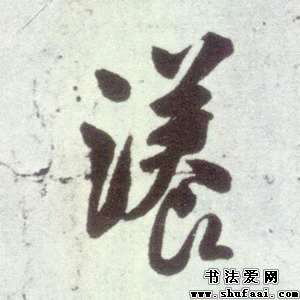 瀁
书法爱网
www.shufaai.com